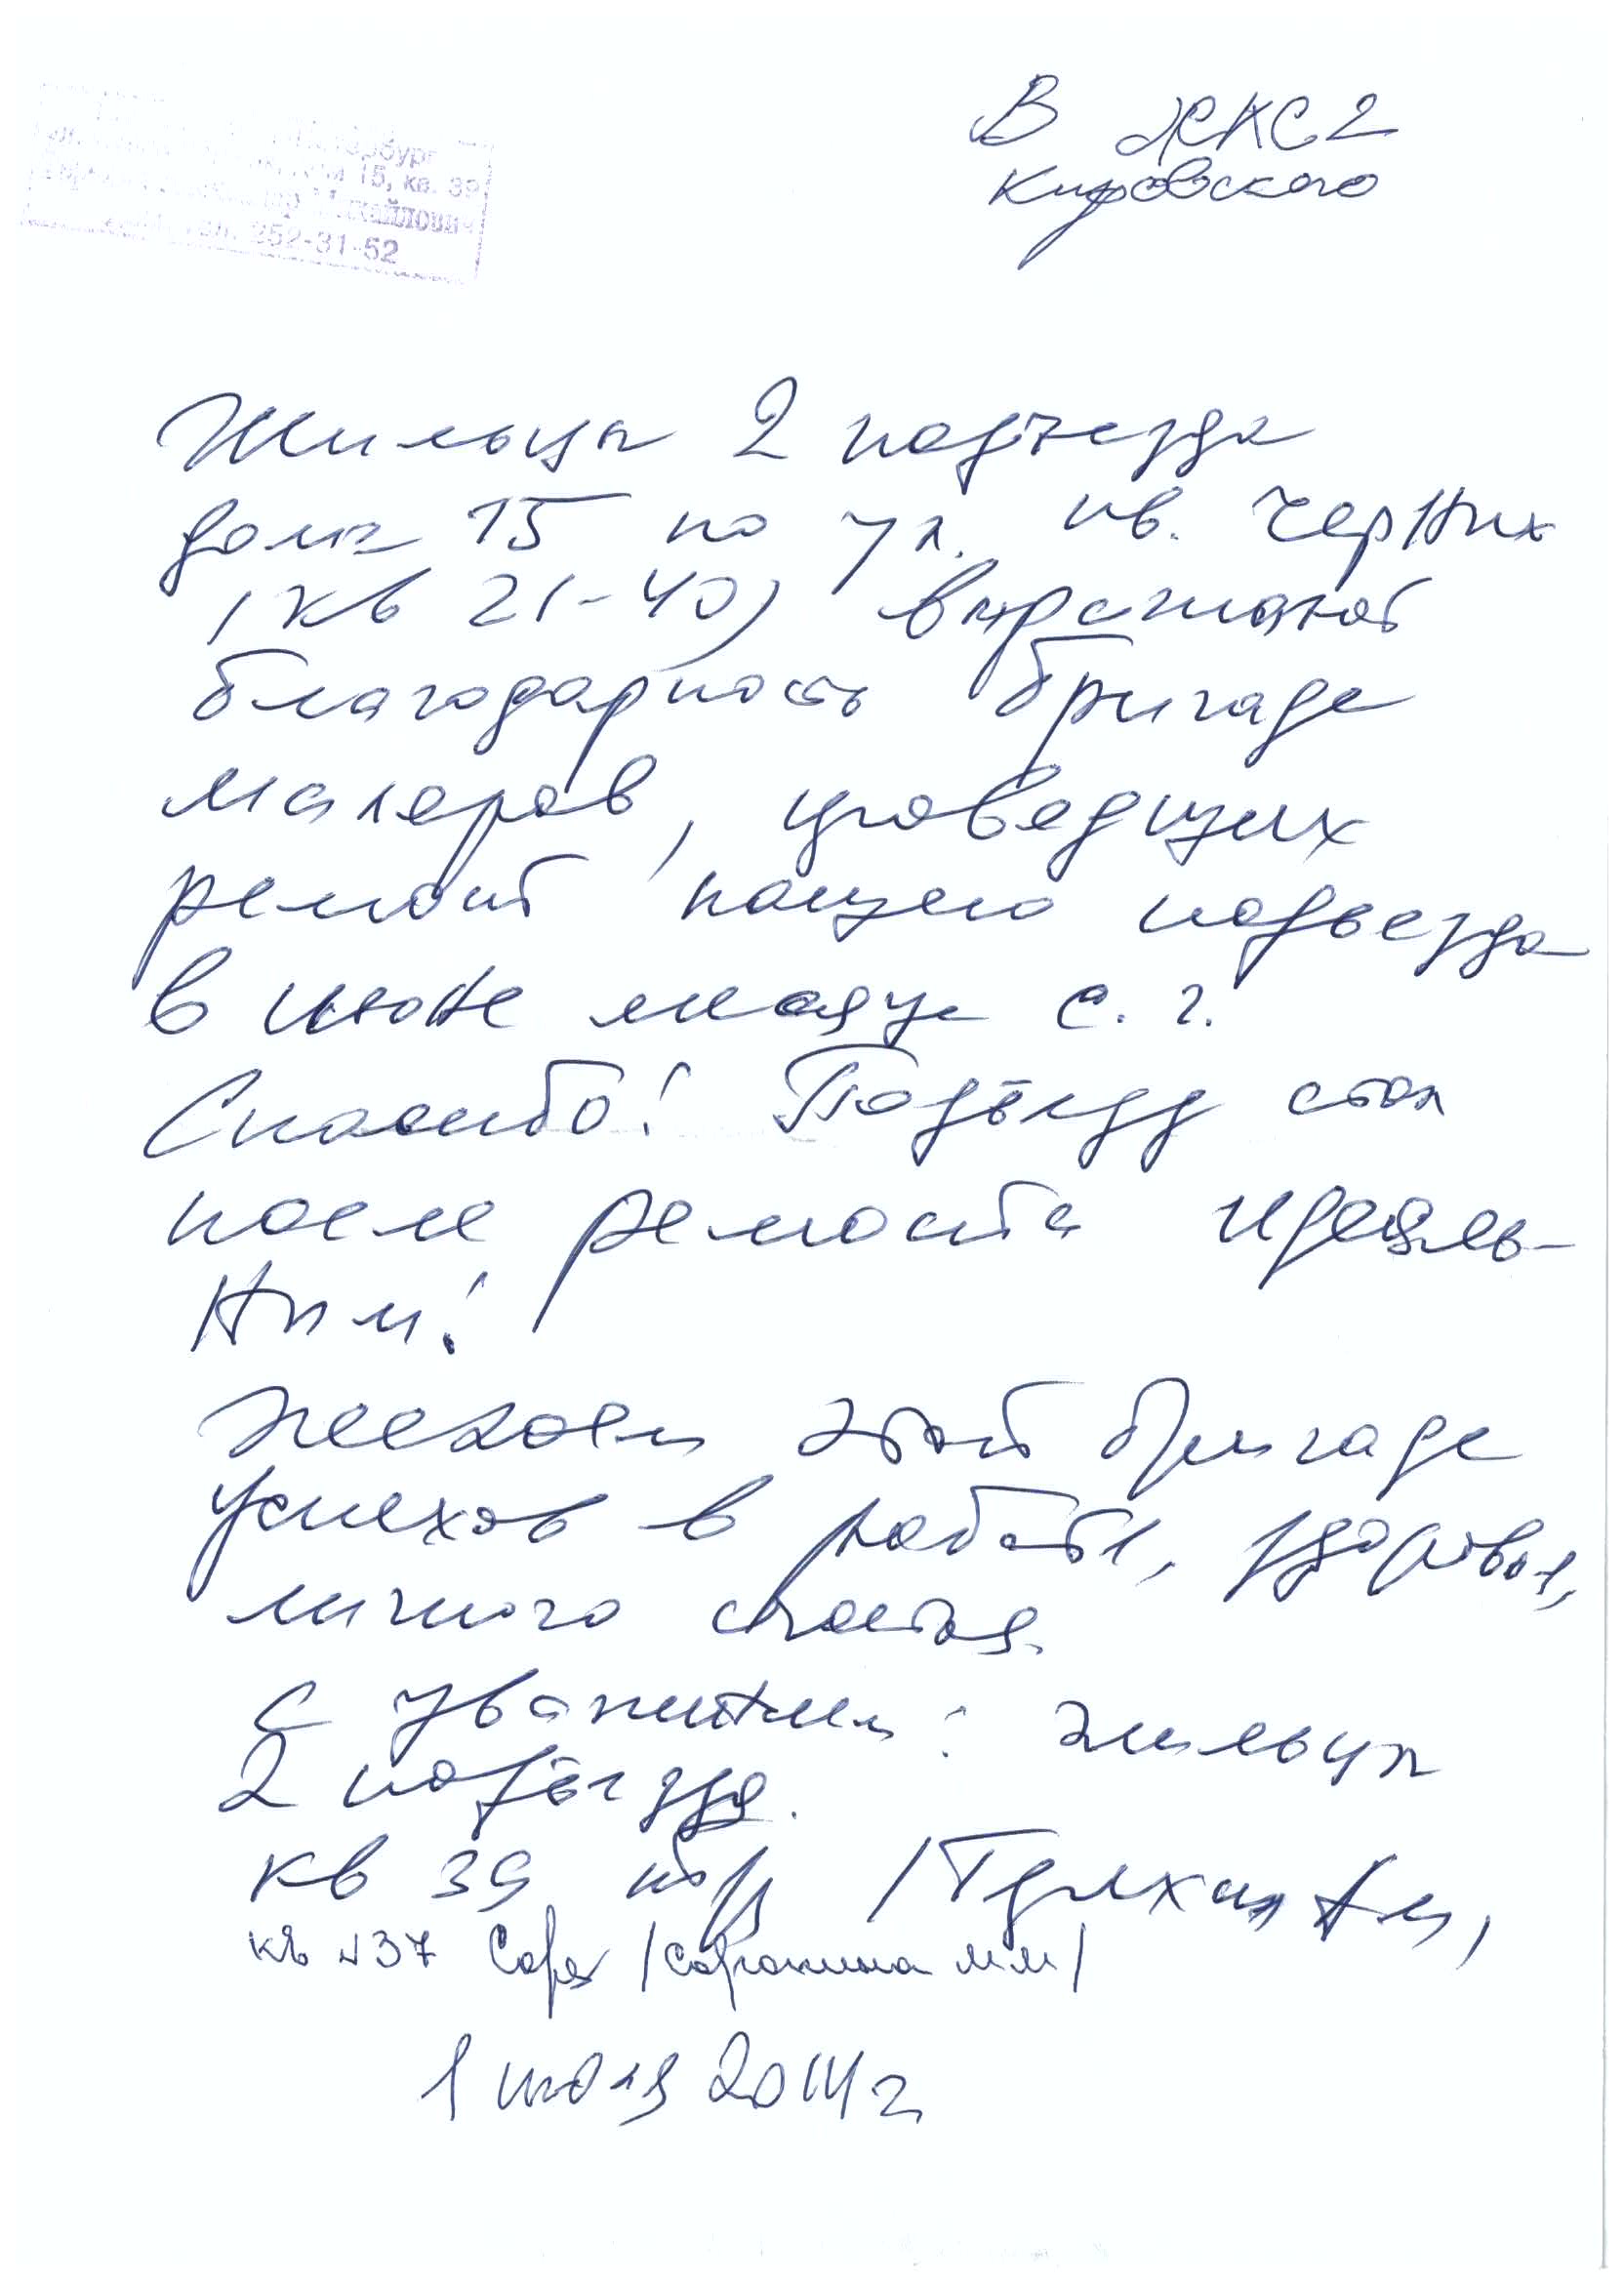 В ЖКС 2
Кировского
15, кв. 39
Михайлович
тел. 252-31-52
Жильцы 2 подъезда
дома 15 по ул. Ив. Черных
(кв 21-40) выражают
благодарность бригаде
маляров, проводящих
ремонт нашего подъезда
в июне месяце с. г.
Спасибо! Подъезд стал
после ремонта идеаль-
ным!
Желаем этой бригаде
успехов в работе, здоровья,
личного счастья.
С уважением: жильцы
2 подъезда.
кв 39
кв №37 /Сорокина ММ/
1 июля 2014 г